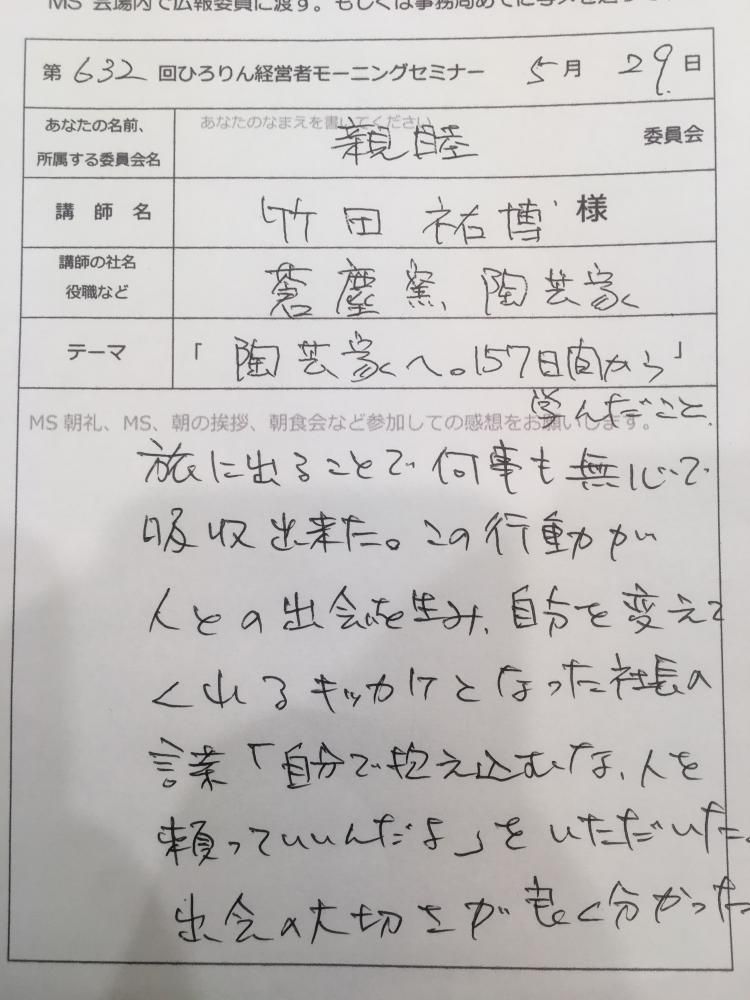 MS 会場内で広報委員に渡す。もしくは事務局あてに写メを送って
第 632 回ひろりん経営者モーニングセミナー 5月 29日
あなたの名前、
所属する委員会名
あなたのなまえを書いてください
親睦 委員会
講師名 竹田 祐博 様
講師の社名
役職など
蒼塵窯、陶芸家
テーマ 「陶芸家へ。157日間から」
学んだこと
MS 朝礼、MS、朝の挨拶、朝食会など参加しての感想をお願いします。
旅に出ることで何事も無心で
吸収出来た。この行動が
人との出会いを生み、自分を変えて
くれるキッカケとなった社長の
言葉「自分で抱え込むな、人を
頼っていいんだよ」をいただいた。
出会の大切さが良く分かった